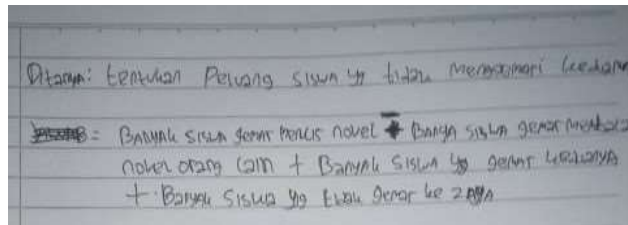 Ditanya: tentukan Peluang siswa yg tidak menggemari keduany
= Banyak siswa gemar menulis novel + Banya siswa gemar membaca
novel orang lain + Banyak siswa yg gemar keduanya
+ Banyak siswa yg tidak gemar ke 2nya